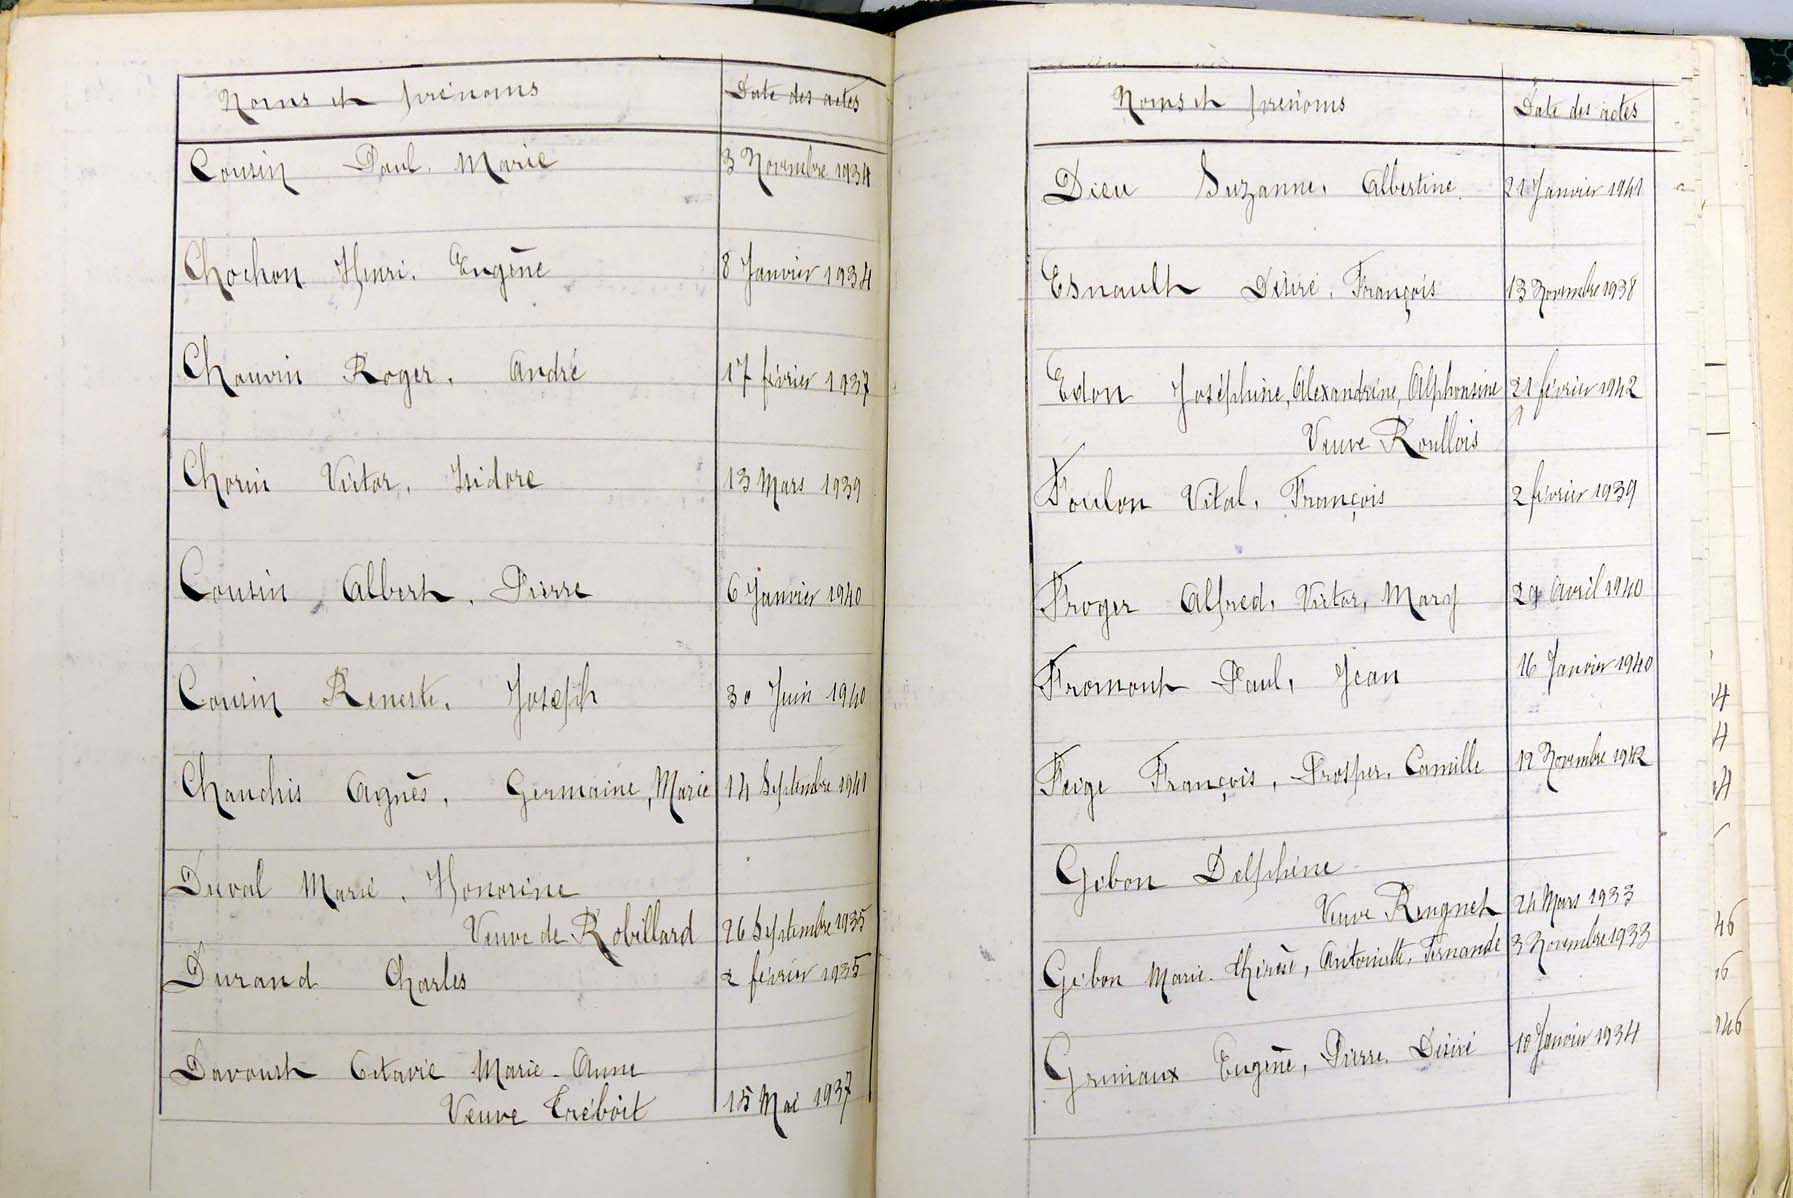 Noms et prénoms Date des actes
Cousin Paul. Marie 3 Novembre 1934
Chochon Henri. Eugène 8 Janvier 1934
Chouvin Roger. André 17 février 1937
Chorin Victor. Isidore 13 Mars 1939
Cousin Albert. Pierre 6 Janvier 1940
Cousin Joseph 30 Juin 1940
Agnès, Germaine, Marie 14 Septembre 1941
Duval Marie. Honorine
Veuve de Robillard 26 Septembre 1935
Durand Charles 2 février 1935
Davoust Octavie Marie-Anne
Veuve Tréboit 15 Mai 1937
Noms et prénoms Date des actes
Dieu Suzanne, Albertine 21 Janvier 1941
Esnault Désiré, François 13 Novembre 1938
Edon Joséphine, Alexandrine, Alphonsine 21 février 1942
Veuve Roullois
Foulon Vital, François 2 février 1939
Froger Alfred, Victor, Mary 29 Avril 1940
Fromont Paul, Jean 16 Janvier 1940
Feige François, Prosper, Camille 12 Novembre 1942
Gibon Delphine
Veuve 24 Mars 1933
Gibon Marie-Thérèse, Antoinette, Fernande 3 Novembre 1933
Eugène, Pierre, Désiré 10 Janvier 1934